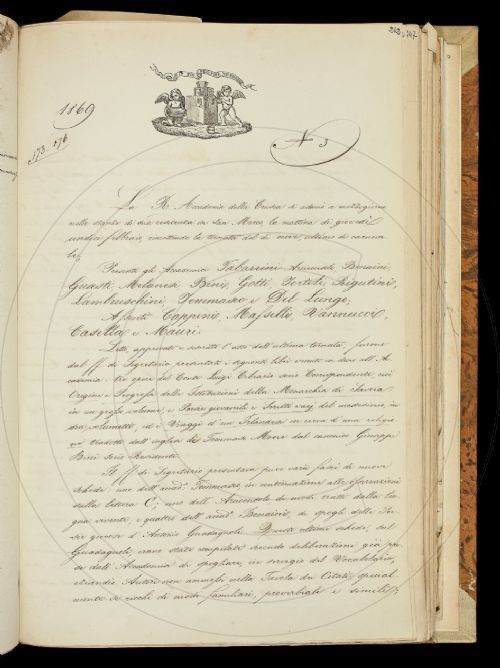 1869
173. 176
N 3
La R. Accademia della Crusca si adunò a mezzogiorno
nella stanza di sua residenza in San Marco la mattina di giovedì
undici febbraio, rimettendo la tornata del dì nove, ultimo di carneva
le.
Presenti gli Accademici Tabarrini Arciconsolo, Bonaini,
Guasti, Milanesi, Bini, Gotti, Tortoli, Rigutini,
Lambruschini, Tommaseo e Del Lungo;
Assenti Capponi, Maffei, Vannucci,
Casella e Mauri.
Letto, approvato e scritto l'atto dell'ultima tornata, furono
dal ff. di Segretario presentati i seguenti libri venuti in dono all'Ac
cademia: tre opere del Conte Luigi Cibrario socio Corrispondente, cioè
Origini e Progresso delle Istituzioni della Monarchia di Savoia
in un grosso volume, e Poesie giovanili e Scritti varj del medesimo, in
due volumetti, ed i Viaggi d'un Irlandese in cerca d'una religio
ne tradotti dall'inglese di Tommaso Moore dal canonico Giuseppe
Bini socio Residente.
Il ff. di Segretario presentava pure varii fasci di nuove
schede: uno dell'accad. Tommaseo in continuazione alle osservazioni
sulla lettera C; uno dell'Arciconsolo di modi tratti dalla lin
gua vivente, e quattro dell'accad. Bonaini, di spogli delle Poe
sie giocose d'Antonio Guadagnoli. Queste ultime schede, sul
Guadagnoli, erano state compilate secondo deliberazione già pre
sa dall'Accademia di spogliare, in servigio del Vocabolario,
eziandio Autori non ammessi nella Tavola dei Citati, special
mente se ricchi di modi familiari, proverbiali e simili.